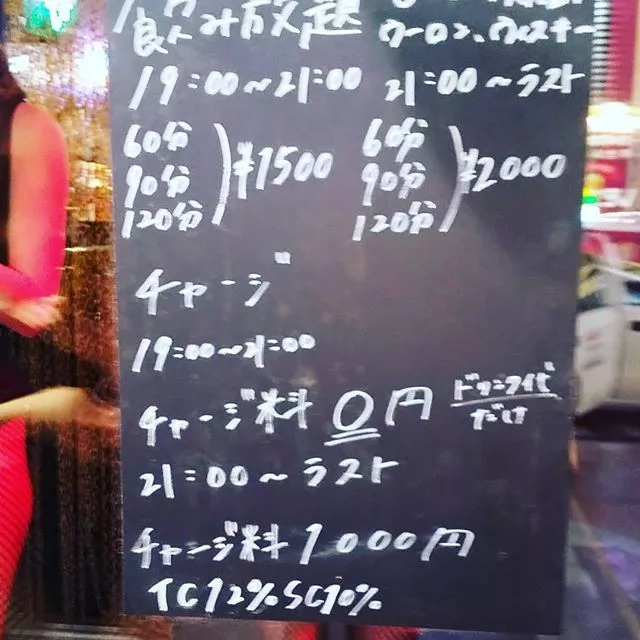 飲み放題 ウーロン、ウィスキー
19:00〜21:00 21:00〜ラスト
60分 60分
90分 ¥1500 90分 ¥2000
120分 120分
チャージ
19:00〜21:00
チャージ料 0円 ドリンク代だけ
21:00〜ラスト
チャージ料 1000円
TC12%SC10%